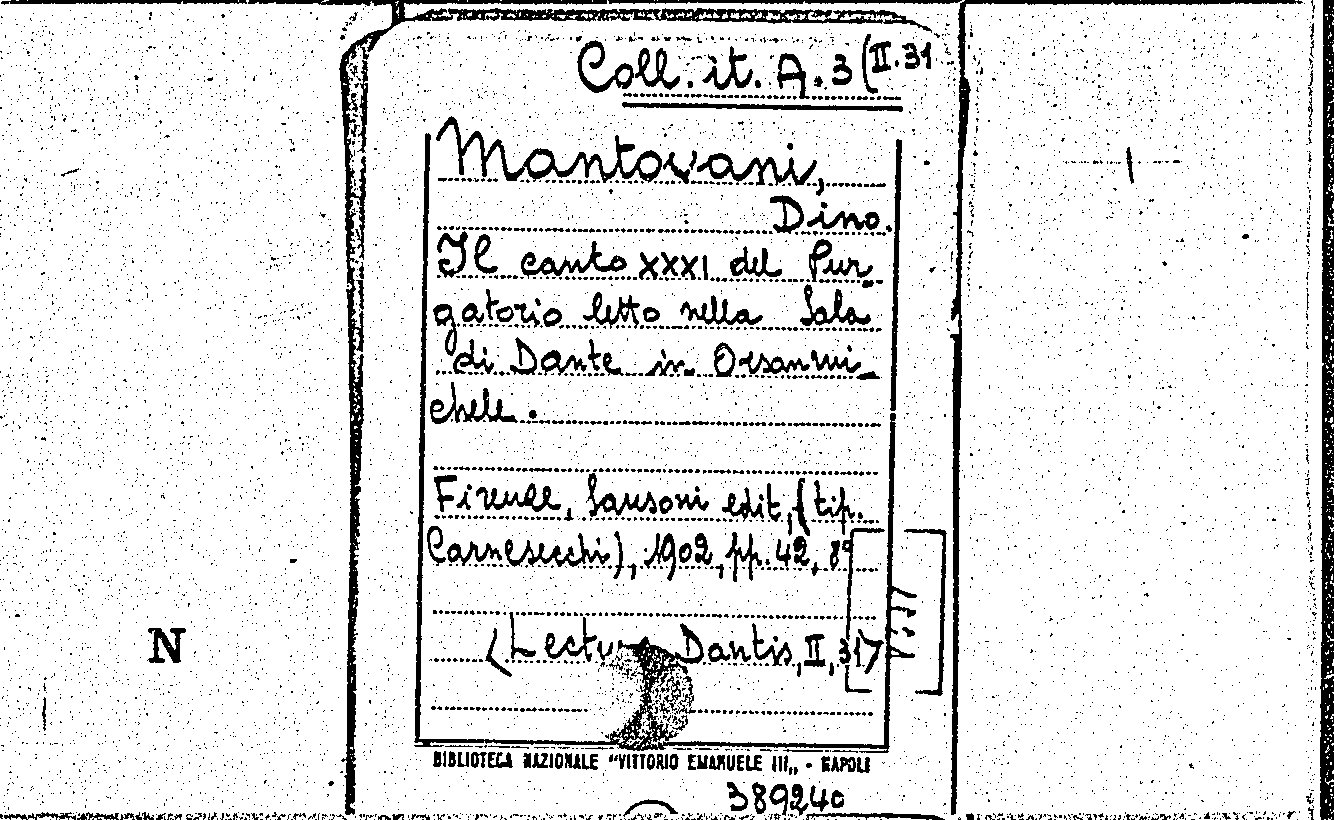 Coll. it. A. 3 (II. 31
Mantovani,
Dino.
Il canto XXXI del Pur-
gatorio letto nella Sala
di Dante in Orsanmi-
chele.
Firenze, Sansoni edit, (tip.
Carnesecchi), 1902, pp. 42, 8º
(Lectura Dantis, II, 31)
N
BIBLIOTECA NAZIONALE "VITTORIO EMANUELE III„ - NAPOLI
389240